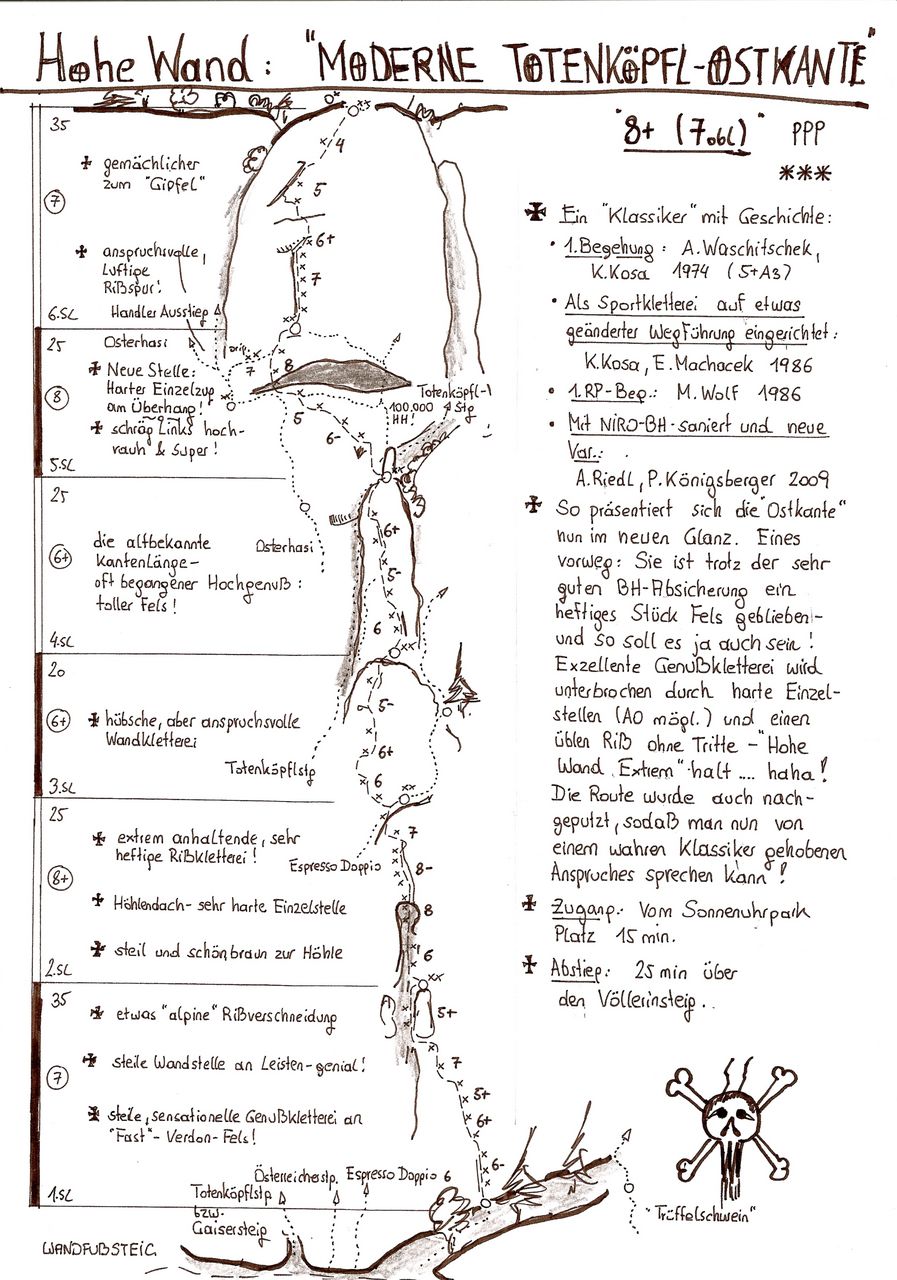 Hohe Wand: "MODERNE TOTENKÖPFL-OSTKANTE"
"8+ (7obl)" PPP
***
35
gemächlicher
zum "Gipfel"
7
anspruchsvolle,
luftige
Rißspur!
6.SL
Handler Ausstieg
4
5
6+
7
25
Osterhasi
orig.
7
8
Neue Stelle:
Harter Einzelzug
am Überhang!
8
schräg links hoch-
rauh & super!
5.SL
5
6-
100.000
HH!
Totenköpfl-
Stg
25
6+
die altbekannte
Kantenlänge-
oft begangener Hochgenuß:
toller Fels!
4.SL
Osterhasi
6+
5-
6
20
6+
hübsche, aber anspruchsvolle
Wandkletterei
Totenköpflstg
3.SL
5-
6+
6
25
extrem anhaltende, sehr
heftige Rißkletterei!
Espresso Doppio
7
8-
8+
Höhlendach- sehr harte Einzelstelle
8
steil und schönbraun zur Höhle
6
2.SL
35
etwas "alpine" Rißverschneidung
5+
steile Wandstelle an Leisten-genial!
7
7
steile, sensationelle Genußkletterei an
"Fast"- Verdon-Fels!
5+
6+
6-
1.SL
Totenköpflstg
bzw.
Gaisersteig
Österreicherstg.
Espresso Doppio 6
WANDFUßSTEIG
Ein "Klassiker" mit Geschichte:
• 1.Begehung: A.Waschitschek,
K.Kosa 1974 (5+A3)
• Als Sportkletterei auf etwas
geänderter Wegführung eingerichtet:
K.Kosa, E.Machacek 1986
• 1.RP-Beg.: M.Wolf 1986
• Mit NIRO-BH-saniert und neue
Var.:
A.Riedl, P.Königsberger 2009
So präsentiert sich die "Ostkante"
nun im neuen Glanz. Eines
vorweg: Sie ist trotz der sehr
guten BH-Absicherung ein
heftiges Stück Fels geblieben-
und so soll es ja auch sein!
Exzellente Genußkletterei wird
unterbrochen durch harte Einzel-
stellen (A0 mögl.) und einen
üblen Riß ohne Tritte - "Hohe
Wand Extrem" halt .... haha!
Die Route wurde auch nach-
geputzt, sodaß man nun von
einem wahren Klassiker gehobenen
Anspruches sprechen kann!
Zugang: Vom Sonnenuhrpark
Platz 15 min.
Abstieg: 25 min über
den Völlerinsteig..
"Trüffelschwein"